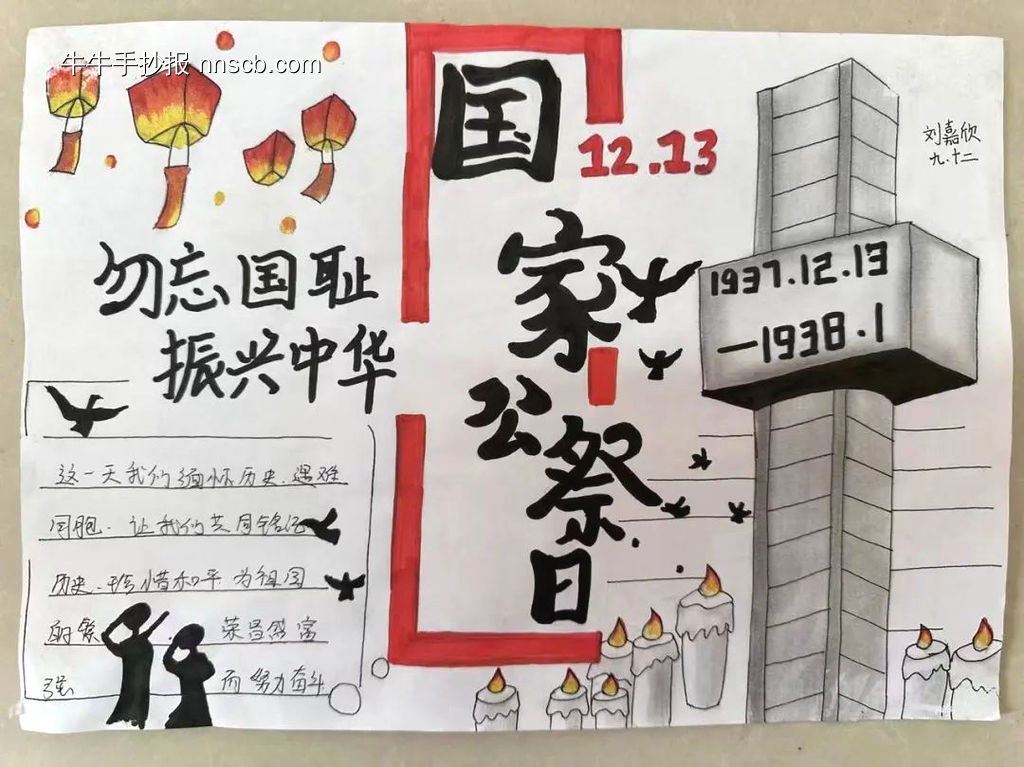 牛牛手抄报 nnscb.com
国家公祭日
12.13
刘嘉欣
九.十二
1937.12.13
—1938.1
勿忘国耻
振兴中华
这一天我们缅怀历史.遇难
同胞.让我们共同铭记
历史.珍惜和平 为祖国
的繁 荣昌盛富
强 而努力奋斗